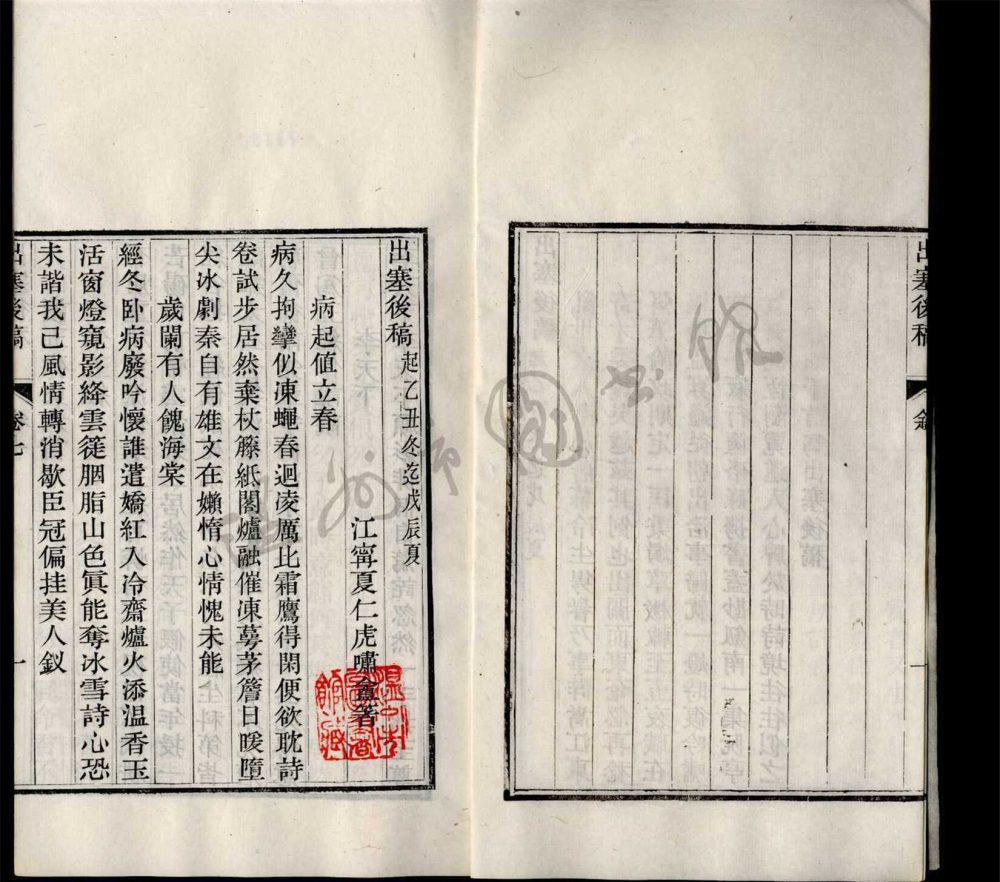 出塞後稿
一
出塞後稿起乙丑冬迄戊辰夏
江甯夏仁虎嘯盦著
病起值立春
病久拘攣似凍蠅春迴凌厲比霜鷹得閑便欲耽詩
卷試步居然棄杖籐紙閣爐融催凍蕚茅簷日暖墮
尖冰劇秦自有雄文在嬾惰心情愧未能
歲闌有人餽海棠
經冬卧病廢吟懷誰遣嬌紅入冷齋爐火添温香玉
活窗燈窺影絳雲篵胭脂山色眞能奪冰雪詩心恐
未諧我已風情轉消歇臣冠偏挂美人釵
出塞後稿
卷七
一